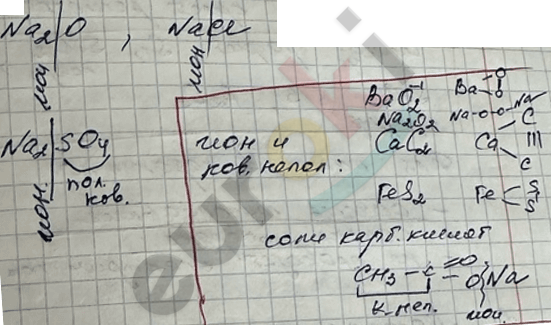 Na₂|O , Na|Cl
ион ион
Na₂|SO₄
ион пол. ков.
ион и ков. непол:
BaO₂⁻¹ Ba O O
Na₂O₂ Na-O-O-Na
CaC₂ Ca C ||| C
FeS₂ Fe S S
соли карб. кислот
CH₃-C=O ONa
к. неп. ион.
euroki